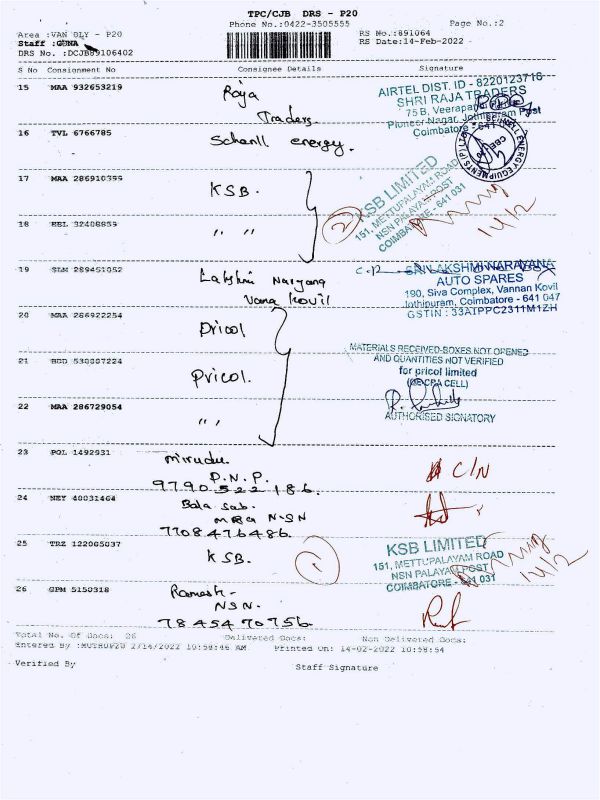 TPC/CJB DRS - P20
Phone No.:0422-3505555
Page No.:2
Area :VAN DLY - P20
RS No.:891064
Staff :GUNA
RS Date:14-Feb-2022
DRS No. :DCJB89106402
S No Consignment No Consignee Details Signature
15 MAA 932653219 Raja Traders.
AIRTEL DIST. ID - 8220123716
SHRI RAJA TRADERS
75 B, Veerapandi
Pioneer Nagar, Jothipuram Post
Coimbatore - 641 047
16 TVL 6766785 energy.
17 MAA 286910399 KSB.
2
KSB LIMITED
151, METTUPALAYAM ROAD
NSN PALAYAM POST
COIMBATORE - 641 031
14/2
18 BBL 32408859 " "
19 SLM 289451052 Lakshmi Narayana
Vana Kovil
SRI LAKSHMI NARAYANA
AUTO SPARES
190, Siva Complex, Vannan Kovil
Jothipuram, Coimbatore - 641 047
GSTIN : 33AIPPC2311M1ZH
20 MAA 286922254 Pricol
21 530807224 Pricol.
MATERIALS RECEIVED-BOXES NOT OPENED
AND QUANTITIES NOT VERIFIED
for pricol limited
AUTHORISED SIGNATORY
22 MAA 286729054 " "
23 PQL 1492931 Mirudu.
P.N.P.
9790522186.
C/N
24 NEY 40031464 Bala sab.
NSN
7708476486.
25 TRZ 122005037 KSB.
1
KSB LIMITED
151, METTUPALAYAM ROAD
NSN PALAYAM POST
COIMBATORE - 641 031
14/2
26 GPM 5150318 Ramesh-
NSN.
7845470756
Total No. Of Docs: 26 Delivered Docs: Non Delivered Docs:
Entered By :MUTHUP20 2/14/2022 10:58:46 AM Printed On: 14-02-2022 10:58:54
Verified By
Staff Signature